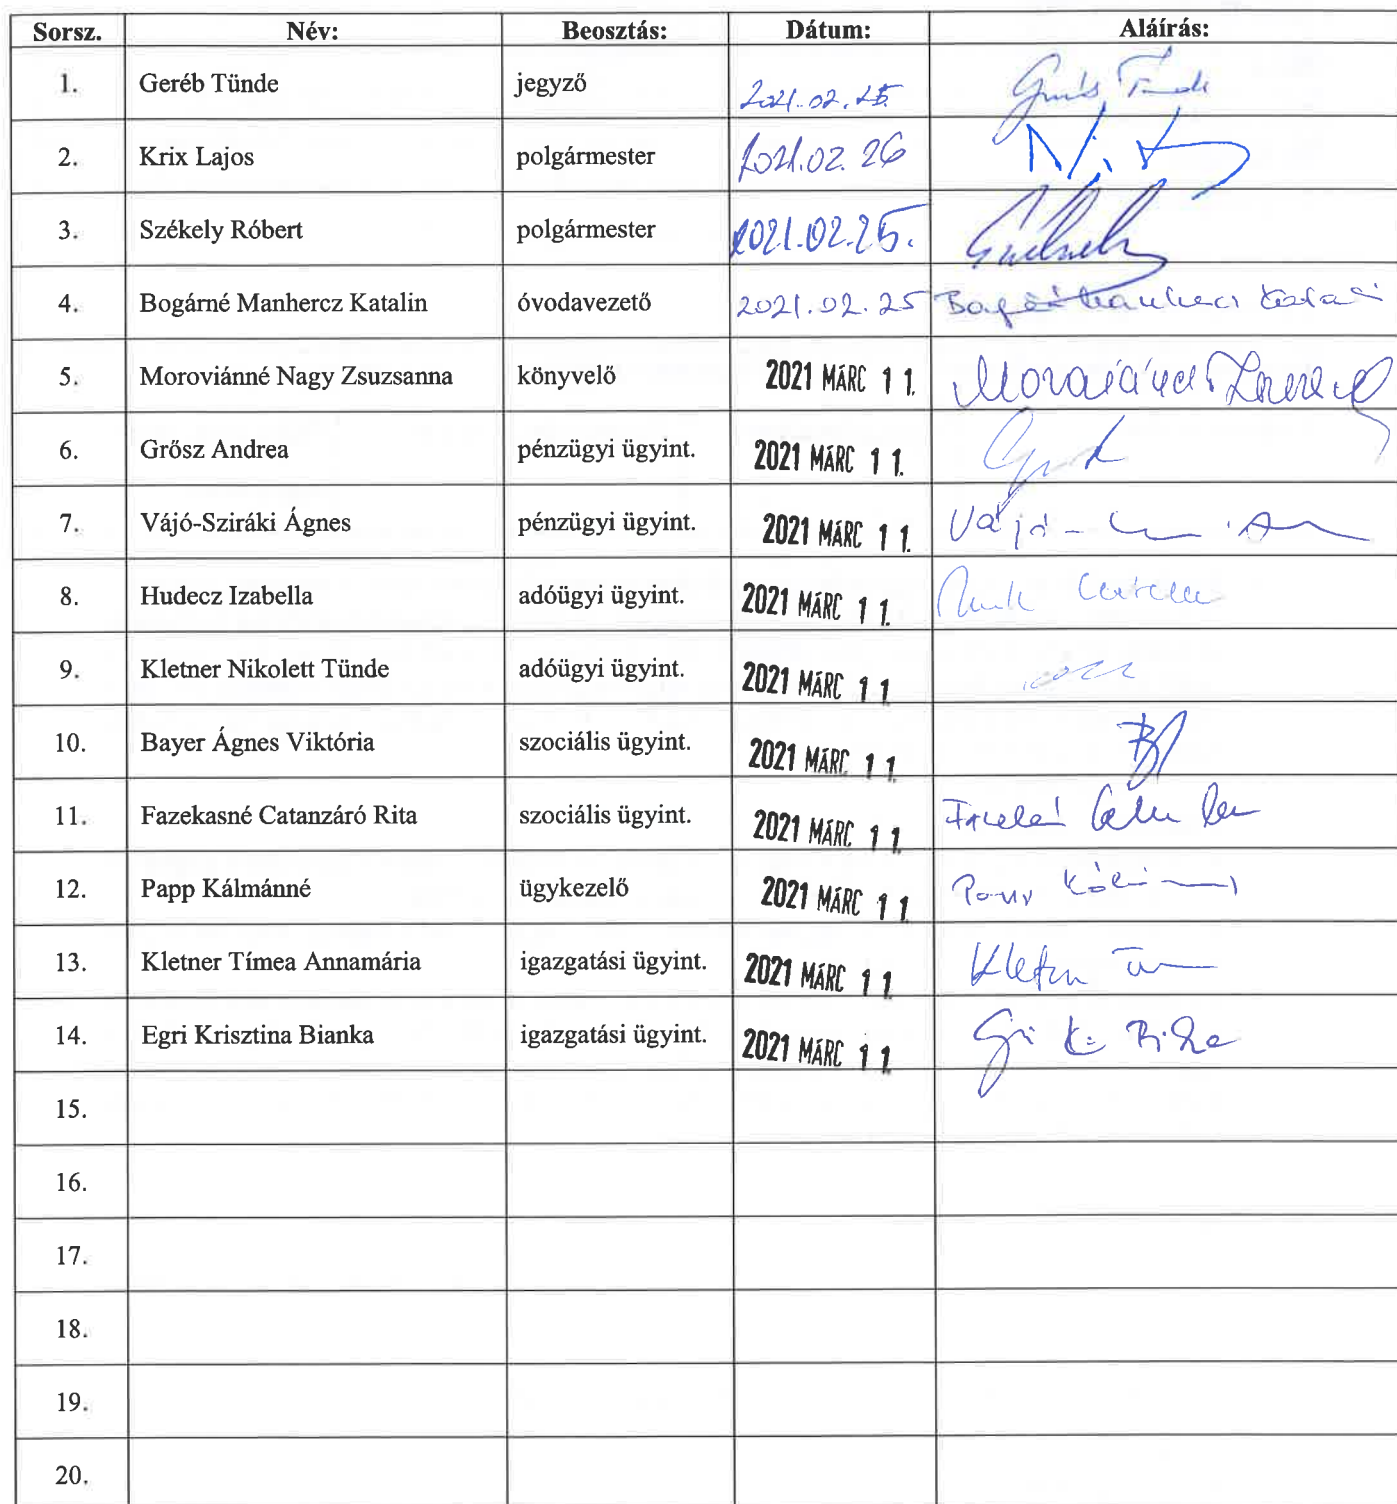 Sorsz. Név: Beosztás: Dátum: Aláírás:
1. Geréb Tünde jegyző 2021.02.25.
2. Krix Lajos polgármester 2021.02.26
3. Székely Róbert polgármester 2021.02.25.
4. Bogárné Manhercz Katalin óvodavezető 2021.02.25
5. Moroviánné Nagy Zsuzsanna könyvelő 2021 MÁRC 11.
6. Grősz Andrea pénzügyi ügyint. 2021 MÁRC 11.
7. Vájó-Sziráki Ágnes pénzügyi ügyint. 2021 MÁRC 11.
8. Hudecz Izabella adóügyi ügyint. 2021 MÁRC 11.
9. Kletner Nikolett Tünde adóügyi ügyint. 2021 MÁRC 11
10. Bayer Ágnes Viktória szociális ügyint. 2021 MÁRC 11.
11. Fazekasné Catanzáró Rita szociális ügyint. 2021 MÁRC 11.
12. Papp Kálmánné ügykezelő 2021 MÁRC 11
13. Kletner Tímea Annamária igazgatási ügyint. 2021 MÁRC 11
14. Egri Krisztina Bianka igazgatási ügyint. 2021 MÁRC 11
15.
16.
17.
18.
19.
20.